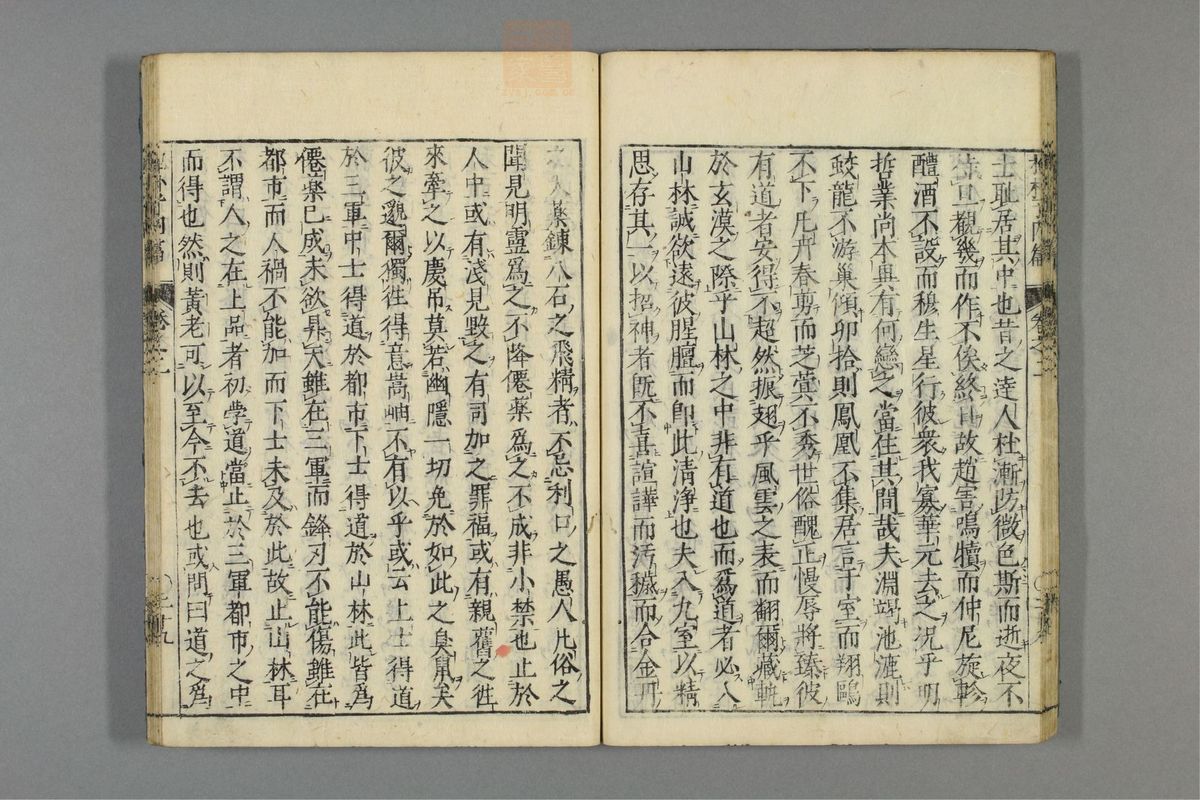 士耻居其中也昔之達人杜漸防微色斯而逝夜不
待旦觀幾而作不俟終日故趙害鳴犢而仲尼旋軫
醴酒不設而穆生星行彼衆我寡華元去之況乎明
哲業尚本異有何戀之當住其間哉夫淵竭池漉則
蛟龍不游巢傾卵拾則鳳凰不集居言于室而翔鷗
不下凡卉春剪而芝蓂不秀世俗醜正慢辱將臻彼
有道者安得不超然振翅乎風雲之表而翻爾藏軌
於玄漠之際乎山林之中非有道也而爲道者必入
山林誠欲遠彼腥膻而即此清淨也夫入九室以精
思存其一以招神者既不喜諠譁而汚穢而合金丹
之大藥鍊八石之飛精者不忌利口之愚人凡俗之
聞見明靈爲之不降僊藥爲之不成非小禁也止於
人中或有淺見毀之有司加之罪福或有親舊之徃
來牽之以慶弔莫若幽隱一切免於如此之臭鼠矣
彼之邈爾獨徃得意嵩岫不有以乎或云上士得道
於三軍中士得道於都市下士得道於山林此皆爲
僊藥已成未欲昇天雖在三軍而鋒刃不能傷雖在
都市而人禍不能加而下士未及於此故止山林耳
不謂人之在上品者初學道當止於三軍都市之中
而得也然則黃老可以至今不去也或問曰道之爲
内篇
卷之二
二十九